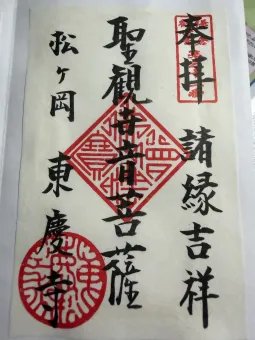 奉拝
諸縁吉祥
聖観世音菩薩
松ヶ岡 東慶寺